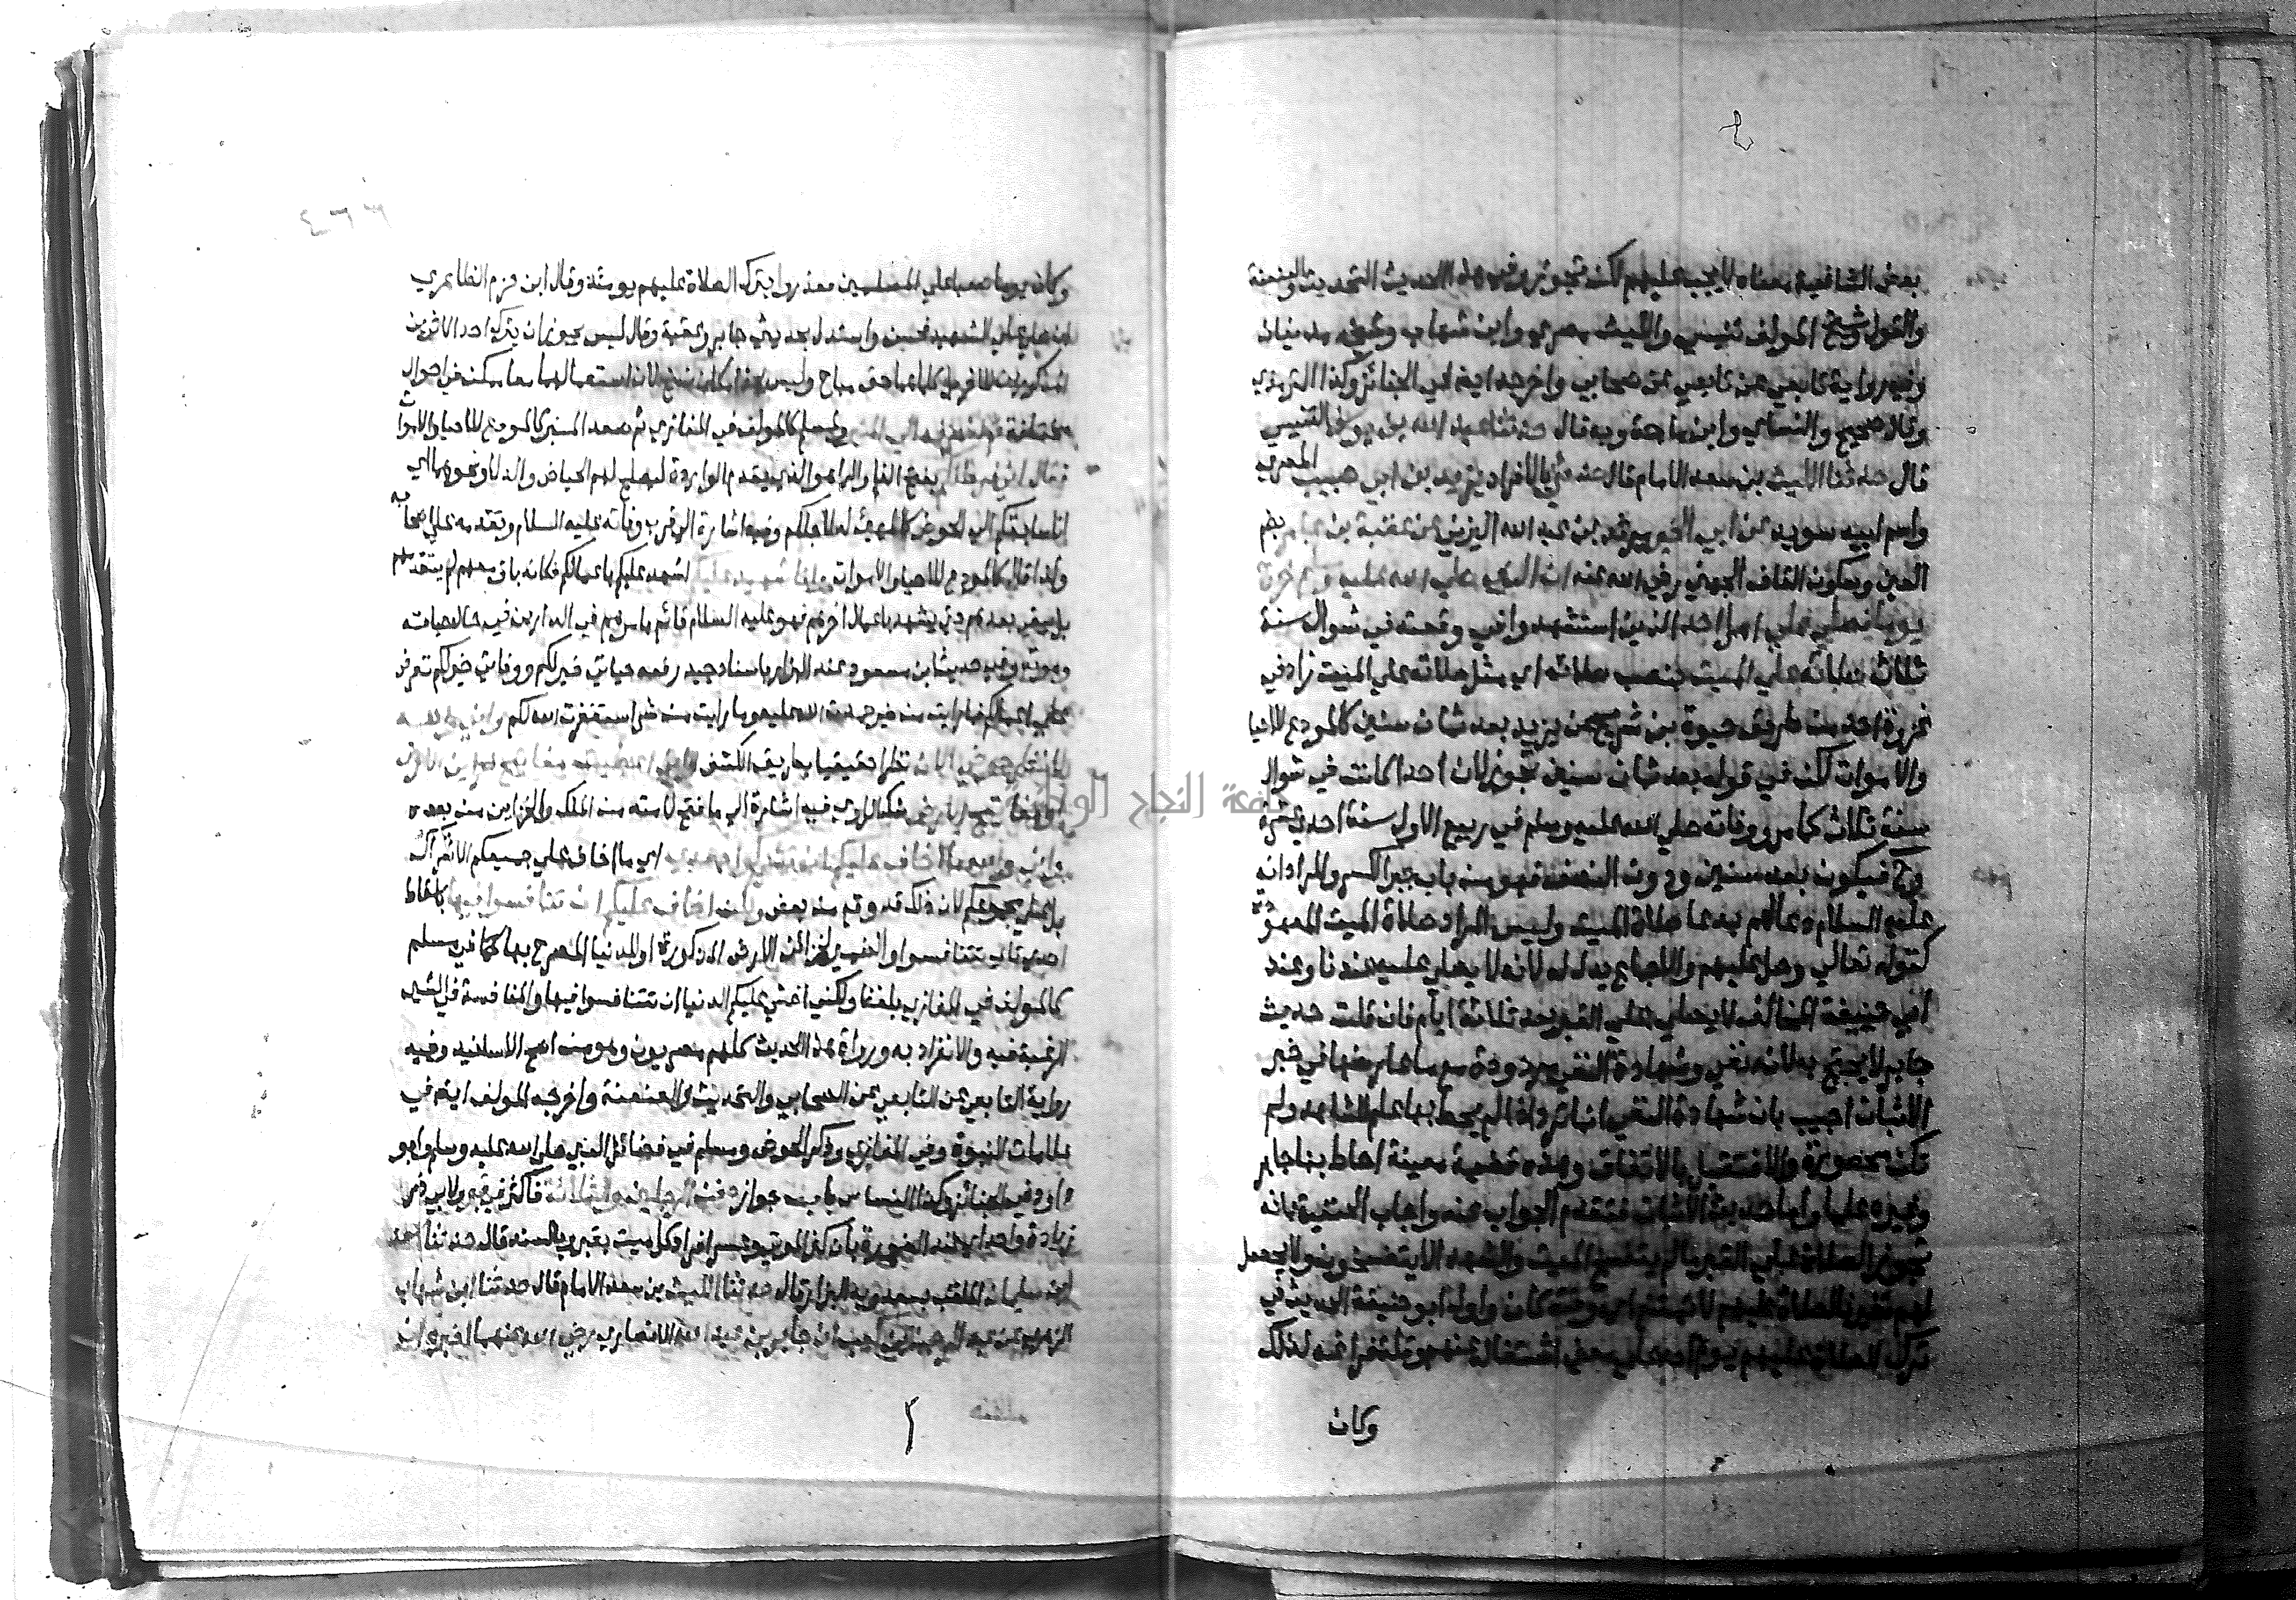 بعض الشافعية معناه لا يجب عليهم لكنه يجوز وفي هذا الحديث التحديث والعنعنة
والقول وشيخ المولف تنيسي والليث مصري وابن شهاب وشيخه مدنيان
وفيه رواية تابعي عن تابعي عن صحابي واخرجه ايضا في الجنائز وكذا الترمذي
وقال صحيح والنساي وابن ماجة وبه قال حدثنا عبد الله بن يوسف التنيسي
قال حدثنا الليث بن سعد الامام قال حدثني بالافراد يزيد بن ابي حبيب المصري
واسم ابيه سويد عن ابي الخير مرثد بن عبد الله اليزني عن عقبة بن عامر بضم
العين وسكون القاف الجهني رضي الله عنه ان النبي صلي الله عليه وسلم خرج
يوما فصلي علي اهل احد الذين استشهدوا في وقعته في شوال سنة
ثلاث صلاته علي الميت بنصب صلاته اي مثل صلاته علي الميت زاد في
غزوة احد من طريق حيوة بن شريح عن يزيد بعد ثمان سنين كالمودع للاحيا
والاموات لكن في قوله بعد ثمان سنين تجوز لان احدا كانت في شوال
سنة ثلاث كما مر ووفاته صلي الله عليه وسلم في ربيع الاول سنة احدي عشرة
وح فيكون بعد سنين ودون النصف فهو من باب جبر الكسر والمراد انه
عليه السلام دعا لهم بدعا صلاة الميت وليس المراد صلاة الميت المعهودة
كقوله تعالي وصل عليهم والاجماع يدل له لانه لا يصلي عليه عندنا وعند
ابي حنيفة المخالف لا يصلي علي القبر بعد ثلاثة ايام فان قلت حديث
جابر لا يحتج به لانه نفي وشهادة النفي مردودة مع ما عارضها في خبر
الاثبات اجيب بان شهادة النفي انما ترد اذا لم يحط بها علم الشاهد ولم
تكن محصورة والا فتقبل بالاتفاق وهذه قضية معينة احاط بها جابر
وغيره علما واما حديث الاثبات فتقدم الجواب عنه واجاب الحنفية بانه
تجوز الصلاة علي القبر ما لم يتفسخ الميت والشهدا لا يتفسخون ولا يحصل
لهم تغير فالصلاة عليهم لا تمتنع اي وقت كان واول ابو حنيفة الحديث في
ترك الصلاة عليهم يوم احد علي معني اشتغاله عنهم وقلة فراغه لذلك
وكان
٤٦٣
وكان يوما صعبا علي المسلمين فعذروا بترك الصلاة عليهم يومئذ وقال ابن حزم الظاهري
ان صلي علي الشهيد فحسن واستدل بحديثي جابر وعقبة وقال ليس يجوز ان يترك احد الاثرين
المذكورين للاخر بل كلاهما حق مباح وليس هذا مكان نسخ لان استعمالهما معا ممكن في احوال
مختلفة ثم انصرف الي المنبر ولمسلم كالمولف في المغازي ثم صعد المنبر كالمودع للاحيا والاموات
فقال اني فرط لكم بفتح الفا والرا هو الذي يتقدم الواردة ليصلح لهم الحياض والدلا ونحوهما اي
انا سابقكم الي الحوض كالمهيئ له لاجلكم وفيه اشارة الي قرب وفاته عليه السلام وتقدمه علي اصحابه
ولذا قال كالمودع للاحيا والاموات وانا شهيد عليكم اشهد عليكم باعمالكم فكانه باق معهم لم يتقدمهم
بل يبقي بعدهم حتي يشهد باعمال اخرهم فهو عليه السلام قائم بامرهم في الدارين في حال حياته
وموته وفي حديث ابن مسعود عند البزار باسناد جيد رفعه حياتي خير لكم ووفاتي خير لكم تعرض
علي اعمالكم فما رايت من خير حمدت الله عليه وما رايت من شر استغفرت الله لكم واني والله
لانظر الي حوضي الان نظرا حقيقيا بطريق الكشف واني اعطيت مفاتيح خزائن الارض
او مفاتيح الارض شك الراوي فيه اشارة الي ما فتح لامته من الملك والخزاين من بعده
واني والله ما اخاف عليكم ان تشركوا بعدي اي ما اخاف علي جميعكم الاشراك
بل علي مجموعكم لان ذلك قد وقع من بعض ولكن اخاف عليكم ان تنافسوا فيها باسقاط
احدي تائي تتنافسوا والضمير لخزائن الارض المذكورة او للدنيا المصرح بها كما في مسلم
كالمولف في المغازي بلفظ ولكني اخشي عليكم الدنيا ان تتنافسوا فيها والمنافسة في الشي
الرغبة فيه والانفراد به ورواة هذا الحديث كلهم مصريون وهو من اصح الاسانيد وفيه
رواية التابعي عن التابعي عن الصحابي والتحديث والعنعنة واخرجه المولف ايضا في
علامات النبوة وفي المغازي وذكر الحوض ومسلم في فضائل النبي صلي الله عليه وسلم وابو
داود في الجنائز وكذا النساي باب جواز دفن الرجلين والثلاثة فاكثر في قبر ولابي ذر
زيادة واحد اي عند الضرورة بان كثر الموتي وعسر افراد كل ميت بقبر وبالسند قال حدثنا سعيد
ابن سليمان الملقب بسعدويه البزار قال حدثنا الليث بن سعد الامام قال حدثنا ابن شهاب
الزهري عن عبد الرحمن بن كعب ان جابر بن عبد الله الانصاري رضي الله عنهما اخبره ان